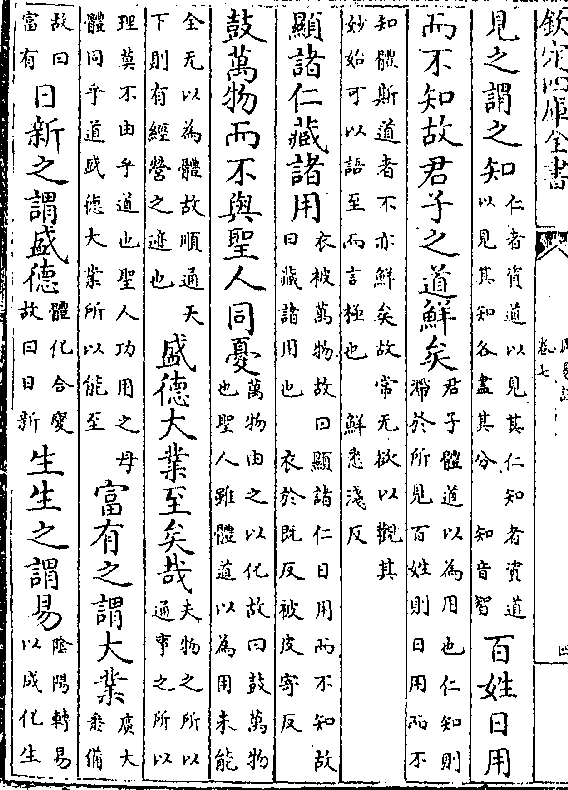 欽定四庫全書
卷七
四
見之謂之知仁者資道以見其仁知者資道以見其知各盡其分 知音智百姓日用
而不知故君子之道鮮矣君子體道以為用也仁知則滯於所見百姓則日用而不
知體斯道者不亦鮮矣故常无欲以觀其妙始可以語至而言極也 鮮悉淺反
顯諸仁藏諸用衣被萬物故曰顯諸仁日用而不知故曰藏諸用也 衣於既反被皮寄反
鼓萬物而不與聖人同憂萬物由之以化故曰鼓萬物也聖人雖體道以為用未能
全无以為體故順通天下則有經營之迹也盛德大業至矣哉夫物之所以通事之所以
理莫不由乎道也聖人功用之母體同乎道盛德大業所以能至富有之謂大業廣大悉備
故曰富有日新之謂盛德體化合變故曰日新生生之謂易陰陽轉易以成化生